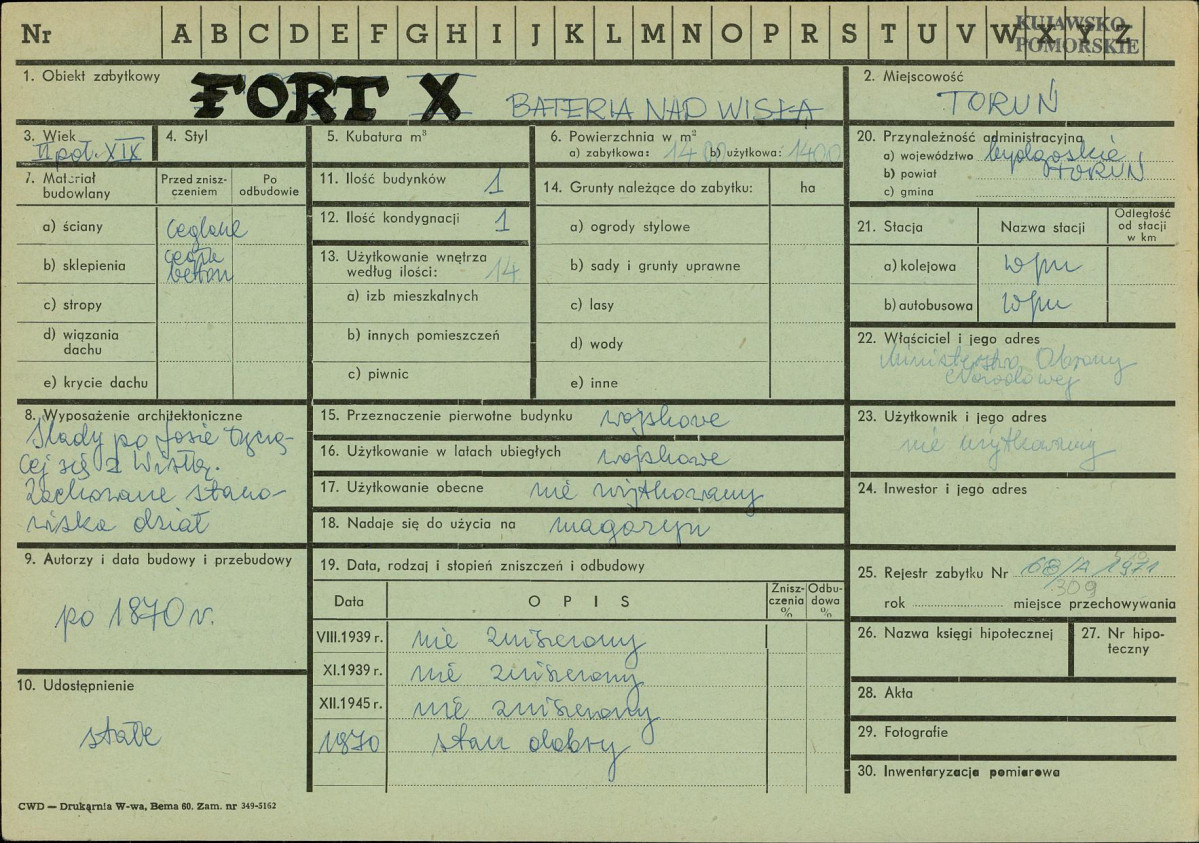 Nr A B C D E F G H I J K L M N O P R S T U V W X Y Z
KUJAWSKO-
POMORSKIE
1. Obiekt zabytkowy
FORT X BATERIA NAD WISŁĄ
2. Miejscowość
TORUŃ
3. Wiek
II poł. XIX
4. Styl
5. Kubatura m³
6. Powierzchnia w m²
a) zabytkowa: 1400 b) użytkowa: 1400
20. Przynależność administracyjna
a) województwo bydgoskie
b) powiat TORUŃ
c) gmina
7. Materiał budowlany
Przed zniszczeniem
Po odbudowie
a) ściany ceglane
b) sklepienia cegła beton
c) stropy
d) wiązania dachu
e) krycie dachu
11. Ilość budynków 1
12. Ilość kondygnacji 1
13. Użytkowanie wnętrza
według ilości: 14
a) izb mieszkalnych
b) innych pomieszczeń
c) piwnic
14. Grunty należące do zabytku: ha
a) ogrody stylowe
b) sady i grunty uprawne
c) lasy
d) wody
e) inne
21. Stacja
Nazwa stacji
Odległość
od stacji
w km
a) kolejowa wpu
b) autobusowa wpu
22. Właściciel i jego adres
Ministerstwo Obrony
Narodowej
8. Wyposażenie architektoniczne
Ślady po fosie łączą-
cej się z Wisłą.
Zachowane stano-
wiska dział
15. Przeznaczenie pierwotne budynku wojskowe
16. Użytkowanie w latach ubiegłych wojskowe
17. Użytkowanie obecne nie użytkowany
18. Nadaje się do użycia na magazyn
23. Użytkownik i jego adres
nie użytkowany
24. Inwestor i jego adres
9. Autorzy i data budowy i przebudowy
po 1870 r.
10. Udostępnienie
stałe
19. Data, rodzaj i stopień zniszczeń i odbudowy
Data
OPIS
Znisz-
czenia
%
Odbu-
dowa
%
VIII.1939 r. nie zniszczony
XI.1939 r. nie zniszczony
XII.1945 r. nie zniszczony
1970 stan dobry
25. Rejestr zabytku Nr 68/A/1971
309
rok miejsce przechowywania
26. Nazwa księgi hipotecznej
27. Nr hipo-
teczny
28. Akta
29. Fotografie
30. Inwentaryzacja pomiarowa
CWD — Drukarnia W-wa, Bema 60. Zam. nr 349-5162